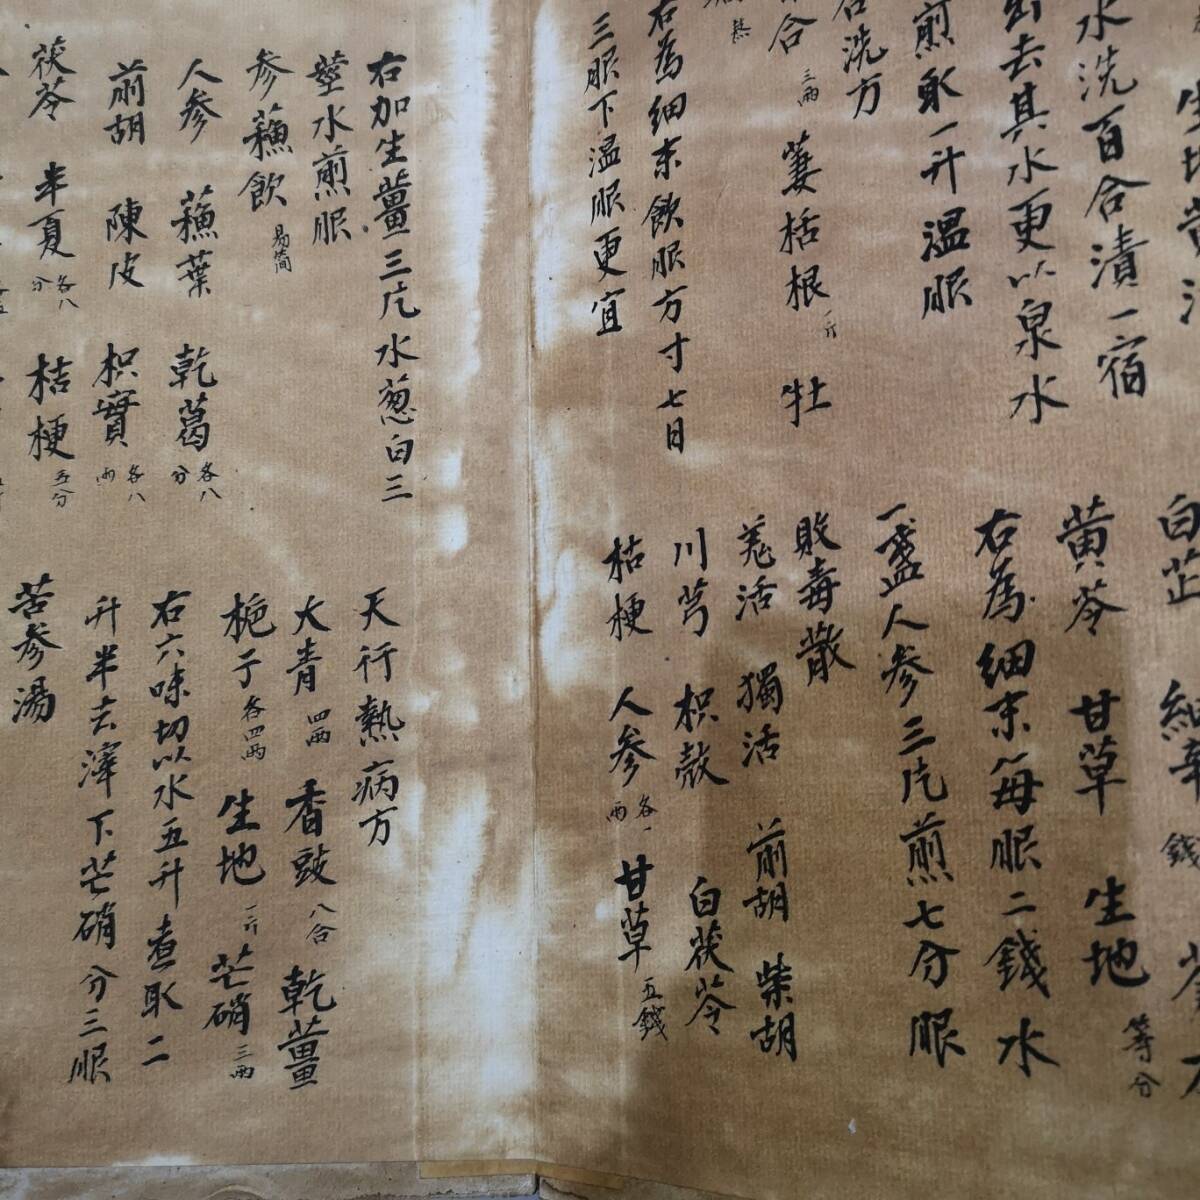 生地黄汁
水洗百合漬一宿
出去其水更以泉水
煎取一升温服
洗方
合 三兩 蔞栝根 一斤 牡
熬
右為細末飲服方寸七日
三服下温服更宜
白芷 細辛 錢
黄芩 甘草 生地 等分
右為細末每服二錢水
一盞人参三片煎七分服
敗毒散
羗活 獨活 前胡 柴胡
川芎 枳殼 白茯苓
桔梗 人参 各一兩 甘草 五錢
右加生薑三片水葱白三
莖水煎服
参蘓飲 易简
人参 蘓葉 乾葛 各八分
前胡 陳皮 枳實 各八
茯苓 半夏 各八分 桔梗 五分
天行熱病方
大青 四兩 香豉 八合 乾薑
梔子 各四兩 生地 一斤 芒硝 三兩
右六味切以水五升煮取二
升半去滓下芒硝分三服
苦参湯